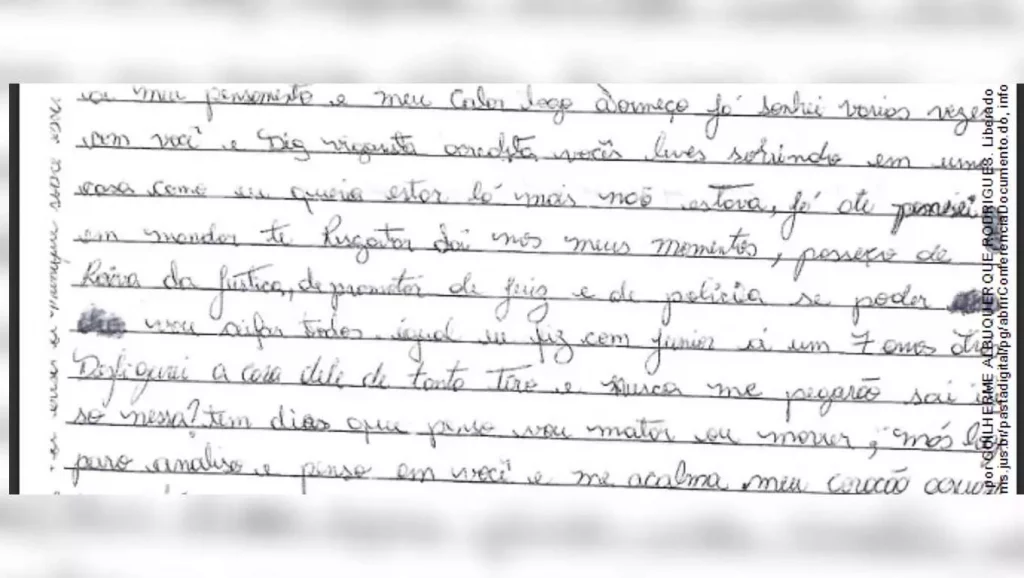 ou meu pensamento e meu calor logo adormeço já sonhei varios vezes
com você e Dig viganta acredita vocês lives sorrindo em uma
casa como eu queria estar lá mais não estava, já ate pensei
em mandar te Resgatar dai nos meus momentos, possexo de
Raiva da Justiça, de promotor de juiz e de policia se poder
vou aifar todos igual eu fiz com junior a um 7 anos atra
Desfigurei a cara dele de tanto Tiro e Nunca me pegarão sai
so nessa? tem dias que penso vou matar ou morrer, mas log
paro analiso e penso em você e me acalma meu coração
por GUILHERME ALBUQUERQUE RODRIGUES. Liberado
ms.jus.br/pastadigital/pg/abrirConferenciaDocumento.do, info